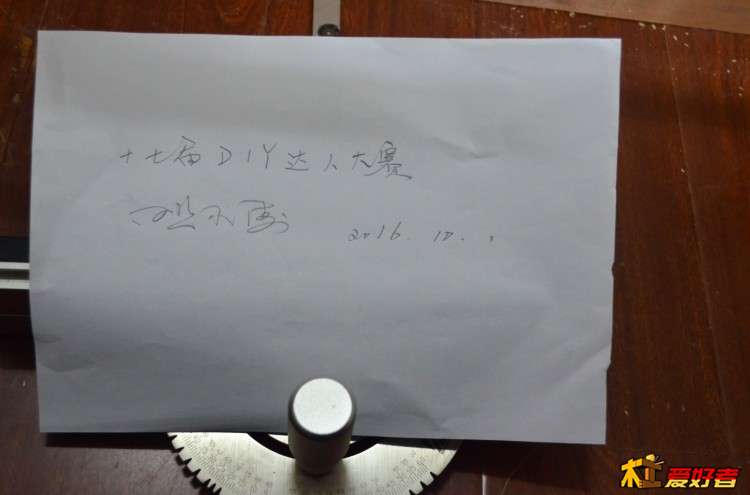 十七届DIY达人大赛
2016.10.
木工爱好者